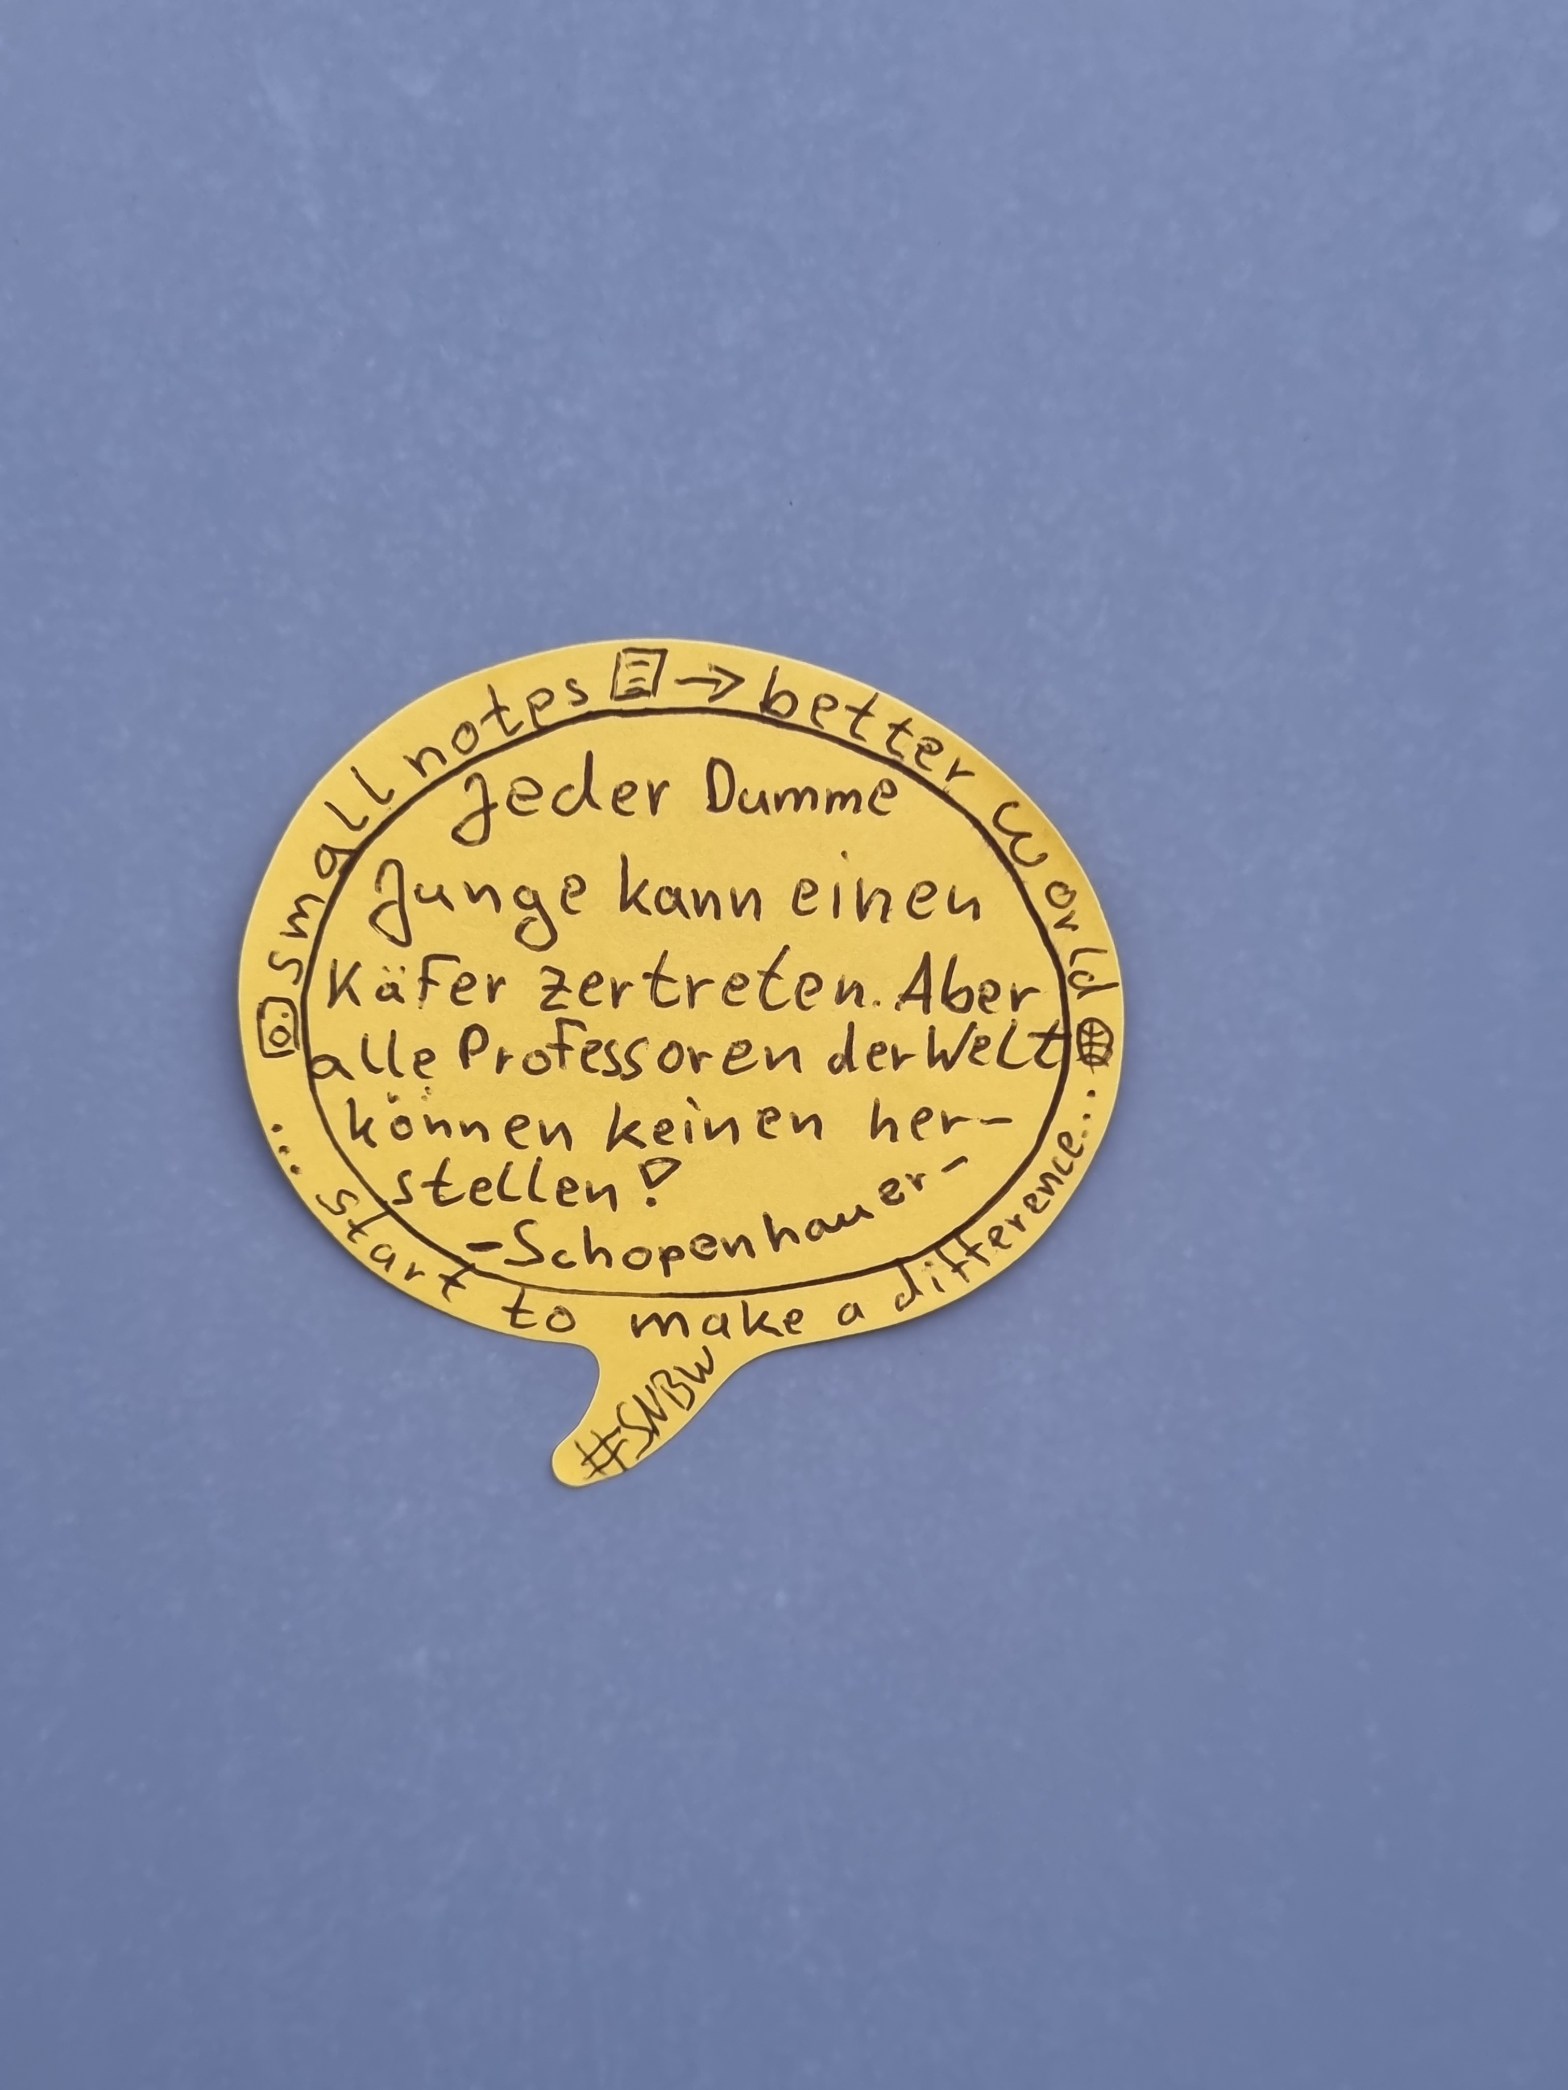 small notes → better world
Jeder Dumme
Junge kann einen
Käfer zertreten. Aber
alle Professoren der Welt
können keinen her-
stellen!
-Schopenhauer-
... start to make a difference...
#SNBW